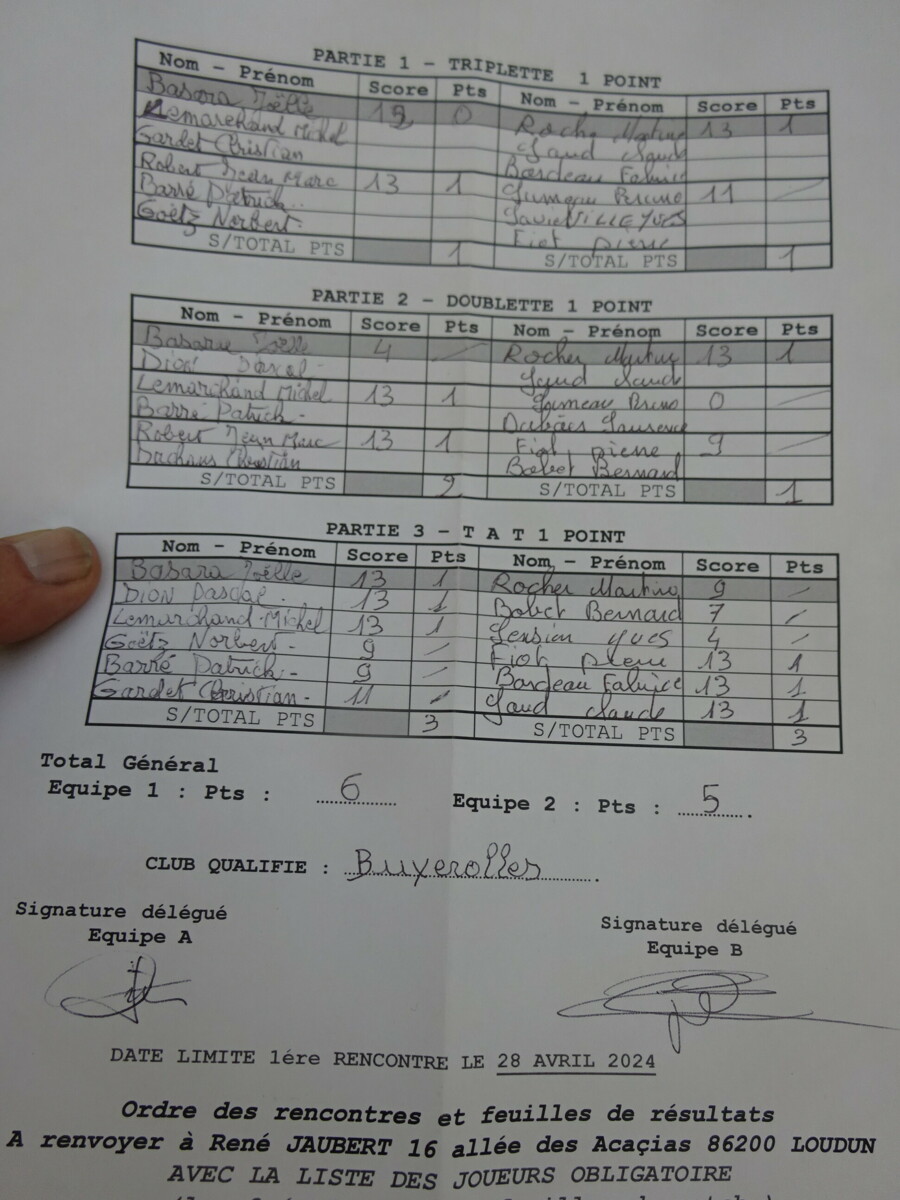 PARTIE 1 - TRIPLETTE 1 POINT
Nom - Prénom Score Pts Nom - Prénom Score Pts
Basara Joëlle 12 0 Rocher Martine 13 1
Lemarchand Michel Jaud Claude
Gardet Christian Bardeau Fabrice
Robert Jean Marc 13 1 Jumeau Bruno 11 /
Barré Patrick. VILLE YVES
Goëtz Norbert. Fiot pierre
S/TOTAL PTS 1 S/TOTAL PTS 1
PARTIE 2 - DOUBLETTE 1 POINT
Nom - Prénom Score Pts Nom - Prénom Score Pts
Basara Joëlle 4 / Rocher Martine 13 1
Dion Pascal - Jaud Claude
Lemarchand Michel 13 1 Jumeau Bruno 0 /
Barré Patrick - Laurence
Robert Jean Marc 13 1 Fiot pierre 9 /
Christian Babet Bernard
S/TOTAL PTS 2 S/TOTAL PTS 1
PARTIE 3 - T A T 1 POINT
Nom - Prénom Score Pts Nom - Prénom Score Pts
Basara Joëlle 13 1 Rocher Martine 9 /
Dion Pascal - 13 1 Babet Bernard 7 /
Lemarchand Michel 13 1 yves 4 /
Goëtz Norbert - 9 / Fiot pierre 13 1
Barré Patrick - 9 / Bardeau Fabrice 13 1
Gardet Christian - 11 / Jaud Claude 13 1
S/TOTAL PTS 3 S/TOTAL PTS 3
Total Général
Equipe 1 : Pts : 6 Equipe 2 : Pts : 5
CLUB QUALIFIE : Buxerolles
Signature délégué Signature délégué
Equipe A Equipe B
DATE LIMITE 1ére RENCONTRE LE 28 AVRIL 2024
Ordre des rencontres et feuilles de résultats
A renvoyer à René JAUBERT 16 allée des Acaçias 86200 LOUDUN
AVEC LA LISTE DES JOUEURS OBLIGATOIRE